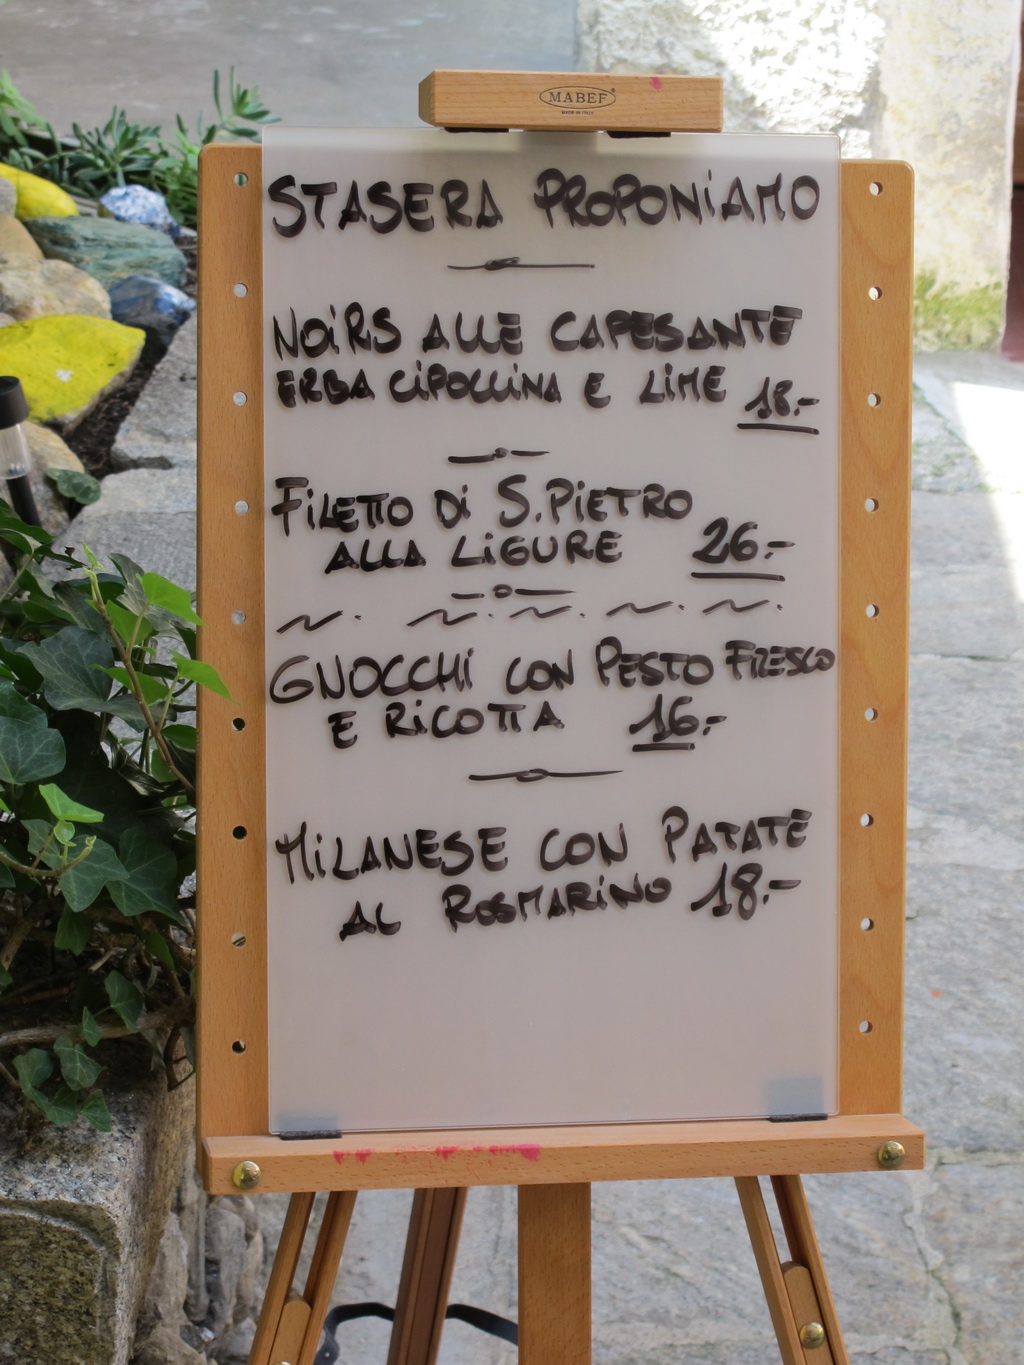 MABEF
MADE IN ITALY
STASERA PROPONiAMO
NOiRS ALLE CAPESANTE
ERBA CiPOLLiNA E LIME 18.-
FiLETTO Di S. PIETRO
ALLA LiGURE 26.-
GNOCCHi CON PESTO FRESCO
E RiCOTTA 16.-
MiLANESE CON PATATE
AL ROSMARiNO 18.-